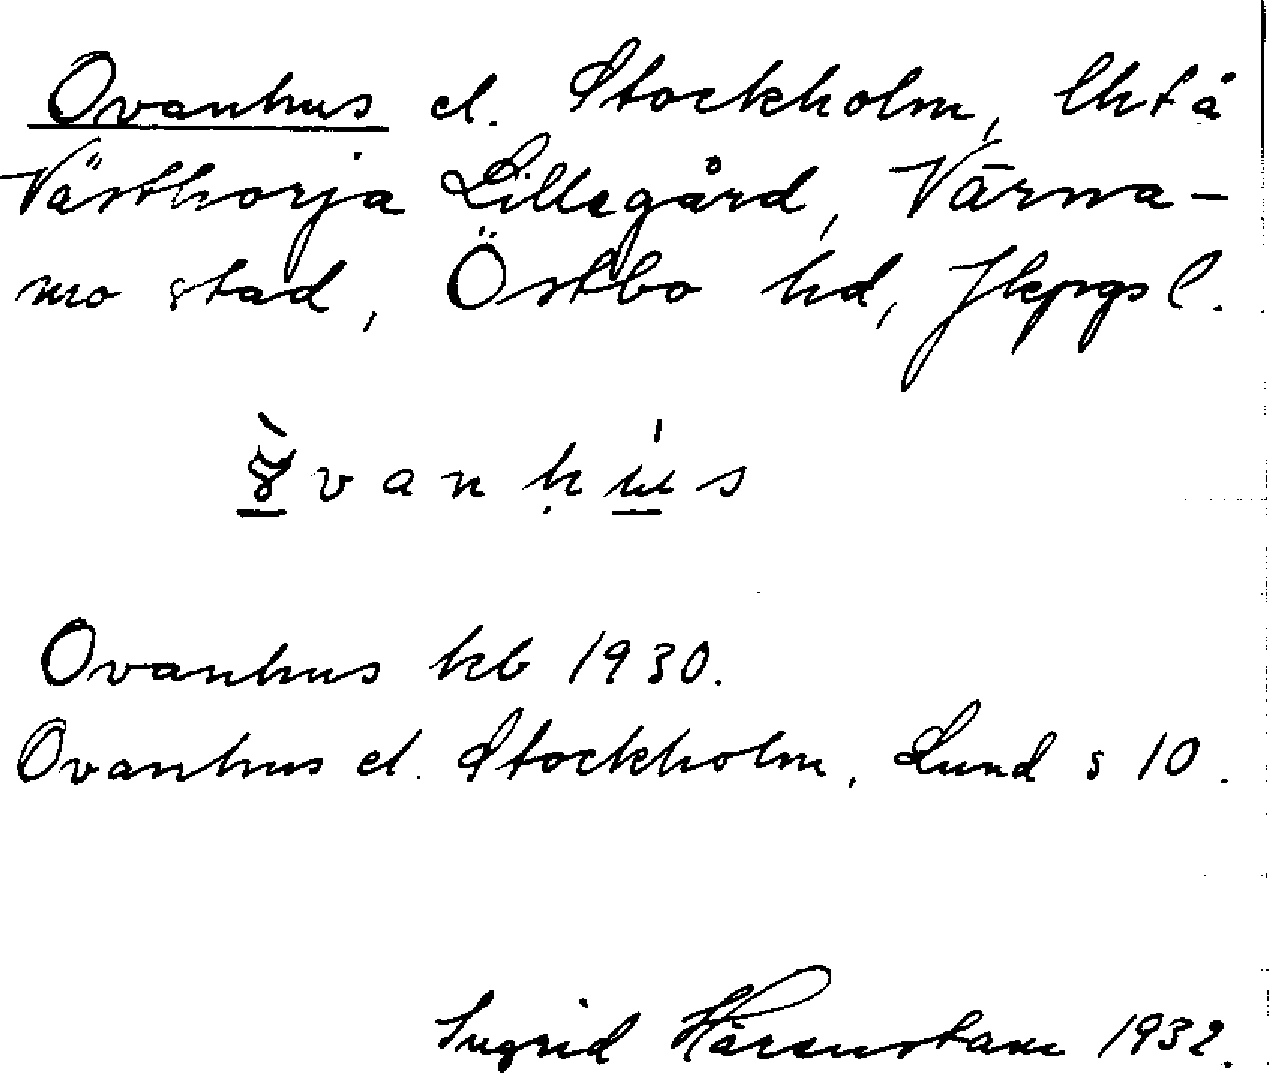 Ovanhus el. Stockholm, lht å
Västhorja Lillegård, Värna-
mo stad, Östbo hd, Jkpgs l.
vanhus
Ovanhus kb 1930.
Ovanhus el. Stockholm, Lund s 10.
Ingrid Härenstam 1932.